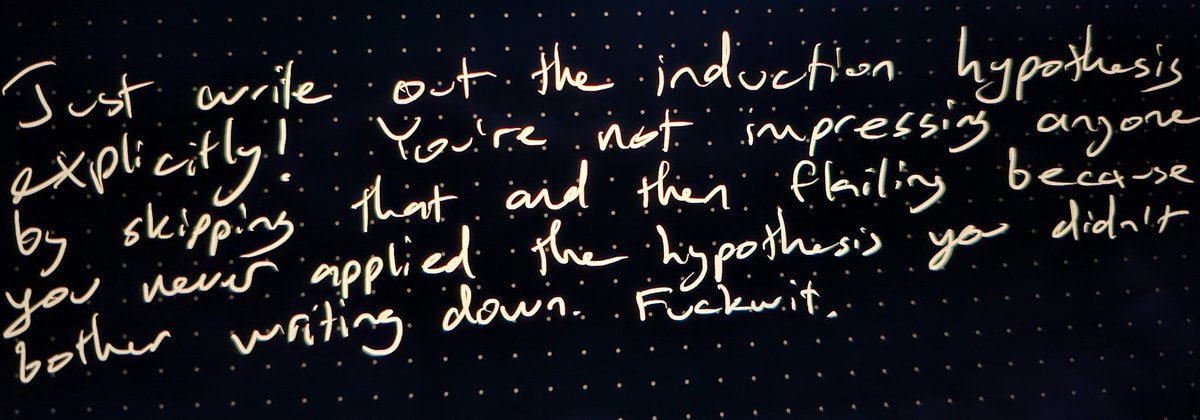 Just write out the induction hypothesis
explicitly! You're not impressing anyone
by skipping that and then flailing because
you never applied the hypothesis you didn't
bother writing down. Fuckwit.